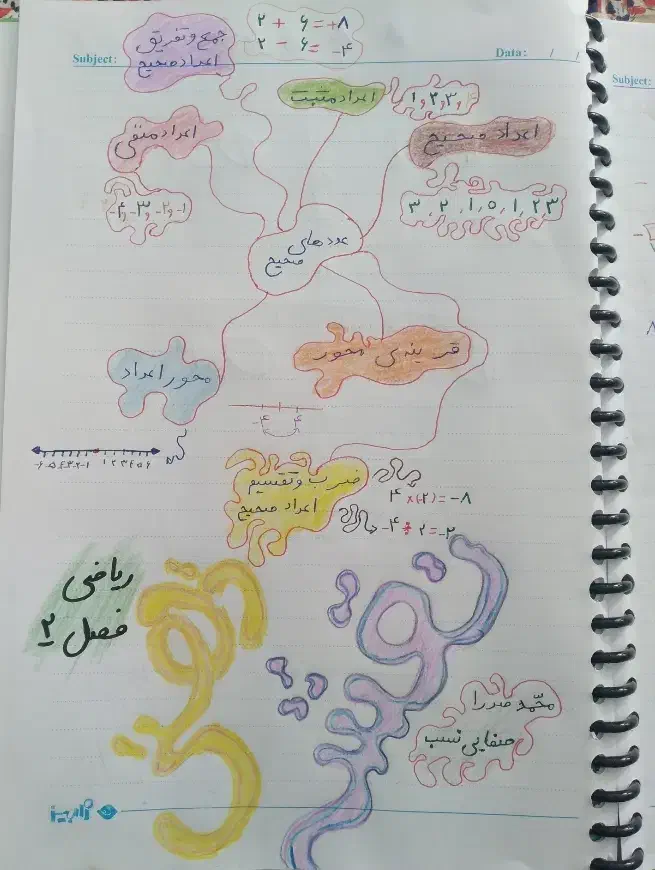 ۲ + ۶ = +۸
۲ - ۶ = -۴
جمع و تفریق
اعداد صحیح
Subject:
Data: / /
Subject:
اعداد مثبت
۱, ۲, ۳, ۴
اعداد منفی
اعداد صحیح
-۴, -۳, -۲, -۱
۳ , ۲ , ۱ , ۰ , ۱ , ۲ , ۳
عددهای
صحیح
محور اعداد
قرینه‌ی محور
-۴ ۴
-۶ -۵ -۴ -۳ -۲ -۱ ۱ ۲ ۳ ۴ ۵ ۶
ضرب و تقسیم
اعداد صحیح
۴ × (-۲) = -۸
-۴ ÷ ۲ = -۲
ریاضی
فصل ۲
محمّد صدرا
صفایی نسب